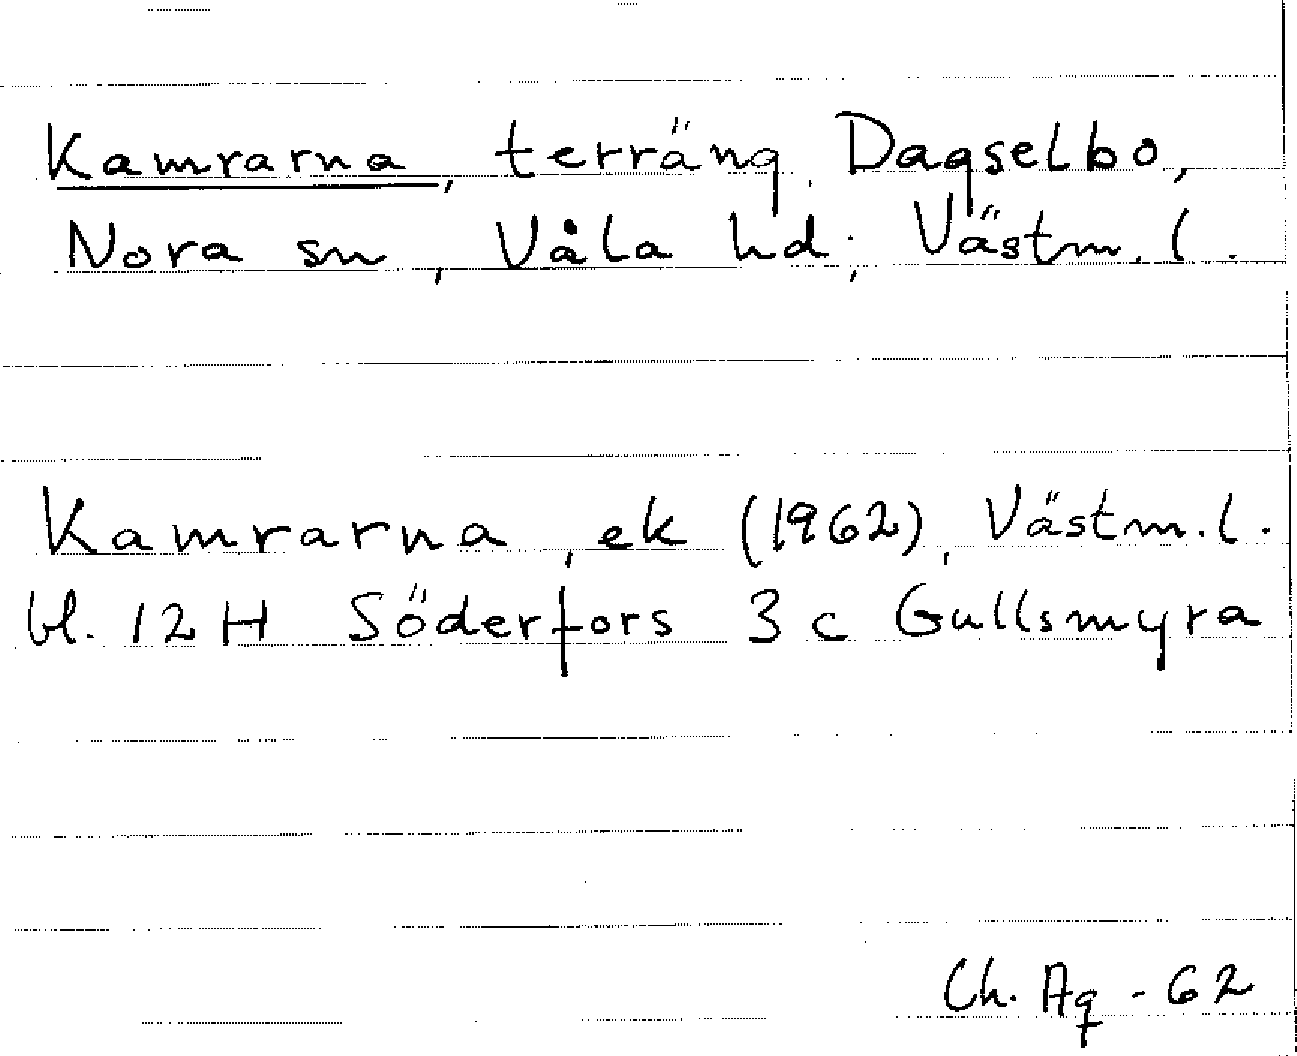 Kamrarna, terräng, Dagselbo,
Nora sn, Våla hd, Västm. l.
Kamrarna, ek (1962), Västm. l.
bl. 12 H Söderfors 3 c Gullsmyra
Ch. Aq - 62